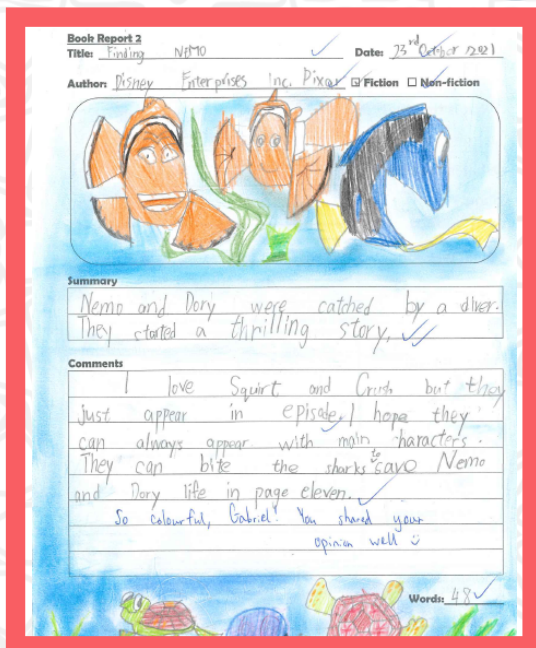 Book Report 2
Title: Finding NEMO Date: 23rd October 2021
Author: Disney Enterprises Inc. Pixar Fiction Non-fiction
Summary
Nemo and Dory were catched by a diver.
They started a thrilling story.
Comments
I love Squirt and Crush but they
just appear in episode, I hope they
can always appear with main haracters.
They can bite the sharks to save Nemo
and Dory life in page eleven.
So colourful, Gabriel! You shared your
opinion well
Words: 48